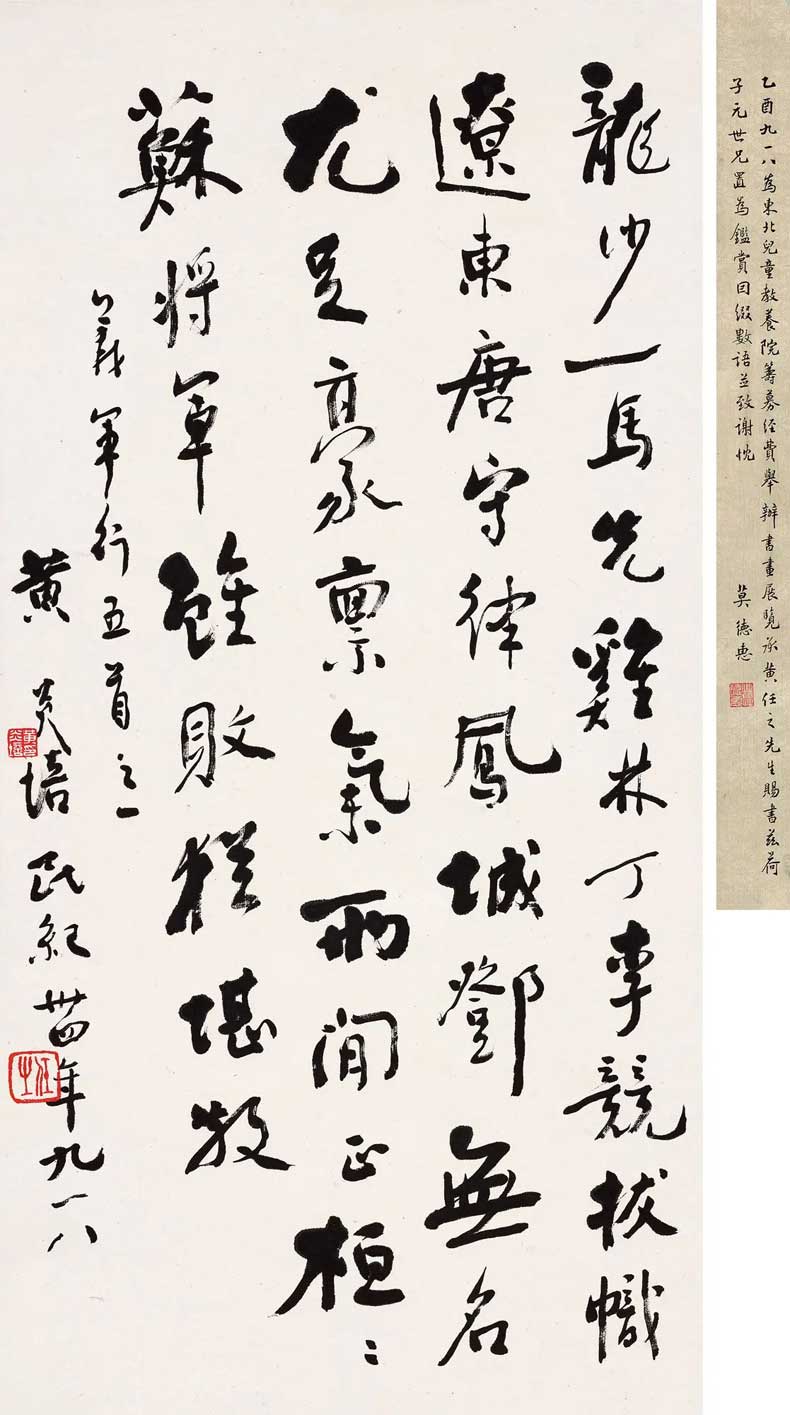 龍沙一馬先雞林丁李競拔幟
遼東唐守律鳳城鄧無名
尤足豪稟氣兩間正桓〻
蘇將軍雖敗猶堪敬
義軍行五首之一
黃炎培民紀卅四年九一八
任之
乙酉九一八為東北兒童教養院籌募經費舉辦書畫展覽承黃任之先生賜書茲荷
子元世兄置為鑑賞因綴數語並致谢忱 莫德惠